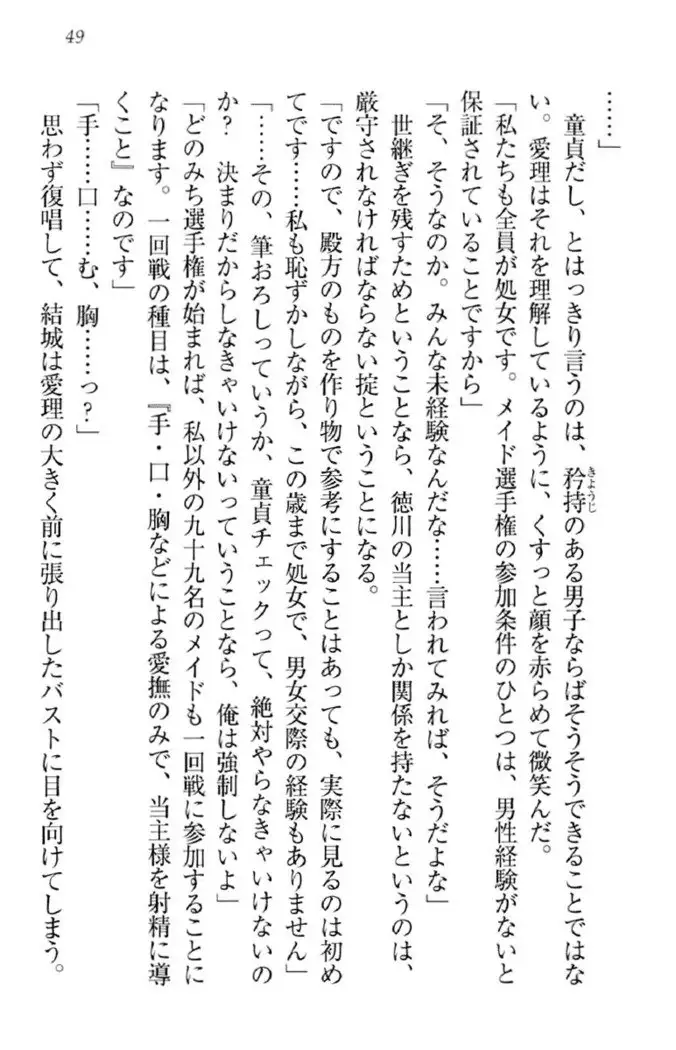 49
……」
童貞だし、とはっきり言うのは、矜持のある男子ならばそうそうできることではな
きょうじ
い。愛理はそれを理解しているように、くすっと顔を赤らめて微笑んだ。
「私たちも全員が処女です。メイド選手権の参加条件のひとつは、男性経験がないと
保証されていることですから」
「そ、そうなのか。みんな未経験なんだな……言われてみれば、そうだよな」
世継ぎを残すためということなら、徳川の当主としか関係を持たないというのは、
厳守されなければならない掟ということになる。
「ですので、殿方のものを作り物で参考にすることはあっても、実際に見るのは初め
てです……私も恥ずかしながら、この歳まで処女で、男女交際の経験もありません」
「……その、筆おろしっていうか、童貞チェックって、絶対やらなきゃいけないの
か？　決まりだからしなきゃいけないっていうことなら、俺は強制しないよ」
「どのみち選手権が始まれば、私以外の九十九名のメイドも一回戦に参加することに
なります。一回戦の種目は、『手・口・胸などによる愛撫のみで、当主様を射精に導
くこと』なのです」
「手……口……む、胸……っ？」
思わず復唱して、結城は愛理の大きく前に張り出したバストに目を向けてしまう。